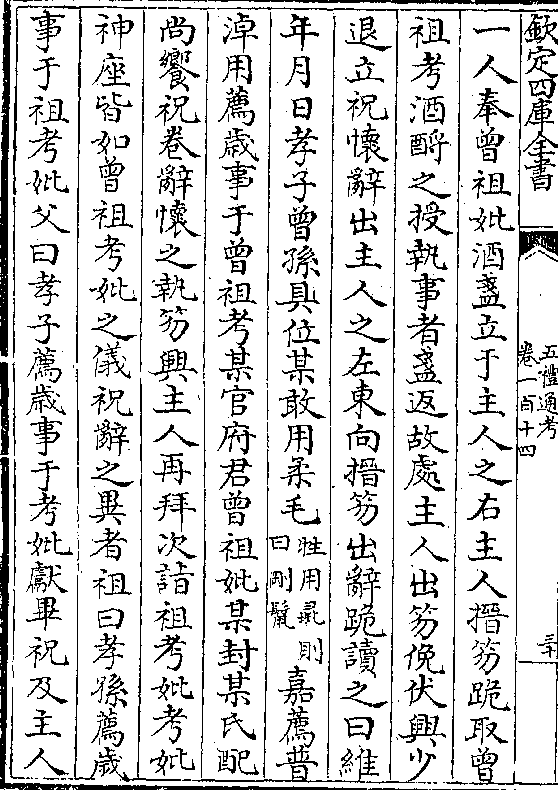 欽定四庫全書
五禮通考
卷一百十四
三十
一人奉曾祖妣酒盞立于主人之右主人搢笏跪取曾
祖考酒酹之授執事者盞返故處主人出笏俛伏興少
退立祝懷辭出主人之左東向搢笏出辭跪讀之曰維
年月日孝子曾孫具位某敢用柔毛牲用彘則曰剛鬛嘉薦普
淖用薦歳事于曾祖考某官府君曾祖妣某封某氏配
尚饗祝卷辭懷之執笏興主人再拜次詣祖考妣考妣
神座皆如曾祖考妣之儀祝辭之異者祖曰孝孫薦歳
事于祖考妣父曰孝子薦歳事于考妣獻畢祝及主人